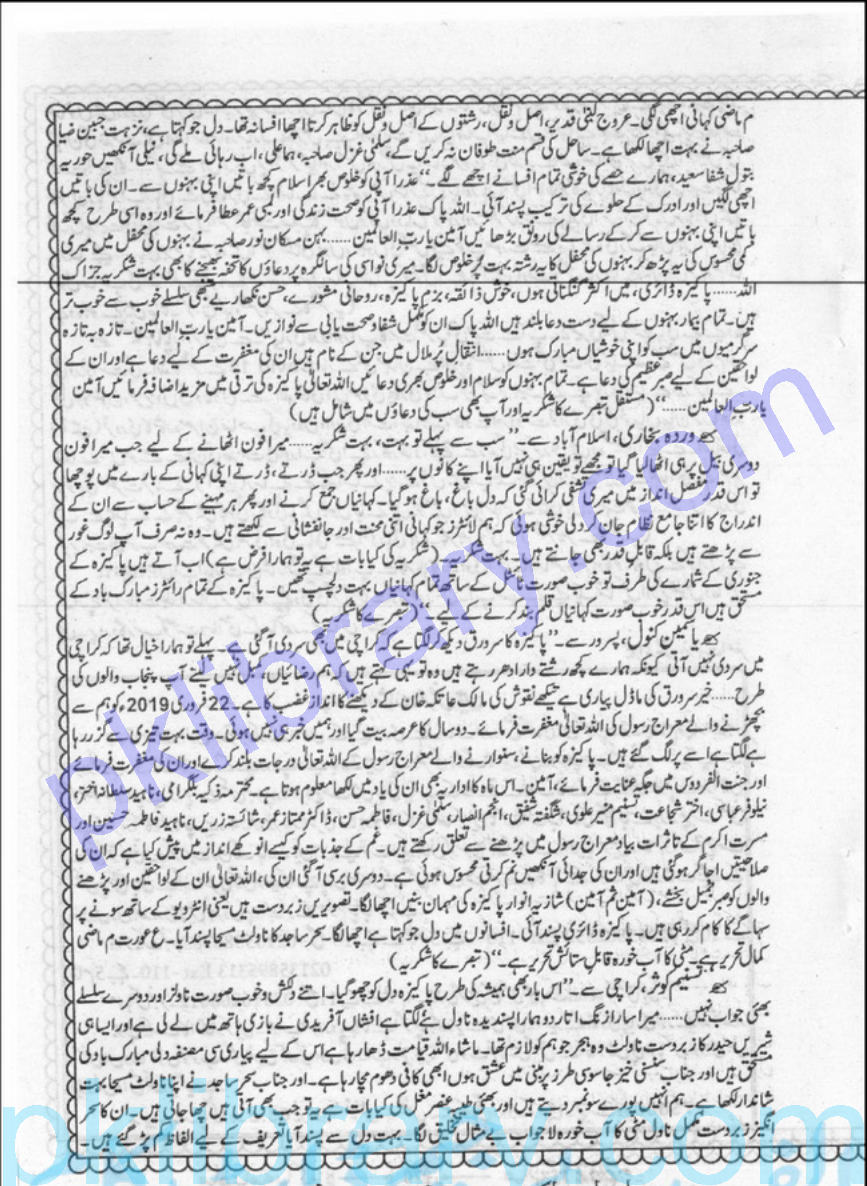 م ماضی کہانی اچھی لگی۔ عروج لیتی قدیر، اصل و نقل، رشتوں کے اصل و نقل کو ظاہر کرتا اچھا افسانہ تھا۔ دل جو کہتا ہے، نزہت جبین ضیا
صاحبہ نے بہت اچھا لکھا ہے۔ ساحل کی قسم منت طوفان نہ کریں گے، سلمیٰ غزل صاحبہ، ہما علی، اب رہائی ملے گی، نیلی آنکھیں حوریہ
بتول شفا سعید، ہمارے حصے کی خوشی تمام افسانے اچھے لگے۔ ”عذرا آپی کو خلوص بھرا سلام کچھ باتیں اپنی بہنوں سے۔ ان کی باتیں
اچھی لگیں اور ادرک کے حلوے کی ترکیب پسند آئی۔ اللہ پاک عذرا آپی کو صحت زندگی اور لمبی عمر عطا فرمائے اور وہ اسی طرح کچھ
باتیں اپنی بہنوں سے کر کے رسالے کی رونق بڑھائیں آمین یا رب العالمین...... بہن مسکان نور صاحبہ نے بہنوں کی محفل میں میری
کمی محسوس کی یہ پڑھ کر بہنوں کی محفل کا یہ رشتہ بہت پُر خلوص لگا۔ میری نواسی کی سالگرہ پر دعاؤں کا تحفہ بھیجنے کا بھی بہت شکریہ جزاک
اللہ...... پاکیزہ ڈائری، میں اکثر گنگناتی ہوں، خوش ذائقہ، بزم پاکیزہ، روحانی مشورے، حسن نکھاریے سبھی سلسلے خوب سے خوب تر
ہیں۔ تمام بیمار بہنوں کے لیے دست دعا بلند ہیں اللہ پاک ان کو مکمل شفا و صحت یابی سے نوازیں۔ آمین یا رب العالمین۔ تازہ بہ تازہ
سرگرمیوں میں سب کو اپنی خوشیاں مبارک ہوں...... انتقال پُر ملال میں جن کے نام ہیں ان کی مغفرت کے لیے دعا ہے اور ان کے
لواحقین کے لیے صبر عظیم کی دعا ہے۔ تمام بہنوں کو سلام اور خلوص بھری دعائیں اللہ تعالیٰ پاکیزہ کی ترقی میں مزید اضافہ فرمائیں آمین
یا رب العالمین......“ (مستقل تبصرے کا شکریہ اور آپ بھی سب کی دعاؤں میں شامل ہیں)
وردہ بخاری، اسلام آباد سے۔ ”سب سے پہلے تو بہت، بہت شکریہ...... میرا فون اٹھانے کے لیے جب میرا فون
دوسری بیل پر ہی اٹھا لیا گیا تو مجھے تو یقین ہی نہیں آیا اپنے کانوں پر...... اور پھر جب ڈرتے، ڈرتے اپنی کہانی کے بارے میں پوچھا
تو اس قدر مفصل انداز میں میری تشفی کرائی گئی کہ دل باغ، باغ ہو گیا۔ کہانیاں جمع کرنے اور پھر ہر مہینے کے حساب سے ان کے
اندراج کا اتنا جامع نظام جان کر دلی خوشی ہوئی کہ ہم رائٹرز جو کہانی اتنی محنت اور جانفشانی سے لکھتے ہیں۔ وہ نہ صرف آپ لوگ غور
سے پڑھتے ہیں بلکہ قابل قدر بھی جانتے ہیں۔ بہت شکریہ۔ (شکریہ کی کیا بات ہے یہ تو ہمارا فرض ہے) اب آتے ہیں پاکیزہ کے
جنوری کے شمارے کی طرف تو خوب صورت ٹائٹل کے ساتھ تمام کہانیاں بہت دلچسپ تھیں۔ پاکیزہ کے تمام رائٹرز مبارک باد کے
مستحق ہیں اس قدر خوب صورت کہانیاں قلم بند کرنے کے لیے۔“ (تبصرے کا شکریہ)
یاسمین کنول، پسرور سے۔ ”پاکیزہ کا سرورق دیکھ کر لگتا ہے کہ کراچی میں بھی سردی آ گئی ہے۔ پہلے تو ہمارا خیال تھا کہ کراچی
میں سردی نہیں آتی کیونکہ ہمارے کچھ رشتے دار ادھر رہتے ہیں وہ تو یہی کہتے ہیں کہ ہم رضائیاں، کمبل نہیں لیتے آپ پنجاب والوں کی
طرح...... خیر سرورق کی ماڈل پیاری ہے تیکھے نقوش کی مالک عاتکہ خان کے دیکھنے کا انداز غضب کا ہے۔ 22 فروری 2019ء کو ہم سے
بچھڑنے والے معراج رسول کی اللہ تعالیٰ مغفرت فرمائے۔ دو سال کا عرصہ بیت گیا اور ہمیں خبر ہی نہیں ہوئی۔ وقت بہت تیزی سے گزر رہا
ہے لگتا ہے اسے پر لگ گئے ہیں۔ پاکیزہ کو بنانے، سنوارنے والے معراج رسول کے اللہ تعالیٰ درجات بلند کرے اور ان کی مغفرت فرمائے
اور جنت الفردوس میں جگہ عنایت فرمائے، آمین۔ اس ماہ کا اداریہ بھی ان کی یاد میں لکھا معلوم ہوتا ہے۔ محترمہ ذکیہ بلگرامی، ناہید سلطانہ اختر،
نیلوفر عباسی، اختر شجاعت، تسنیم منیر علوی، شگفتہ شفیق، انجم انصار، سلمیٰ غزل، فاطمہ حسن، ڈاکٹر ممتاز عمر، شائستہ زریں، ناہید فاطمہ حسنین اور
مسرت اکرم کے تاثرات بیاد معراج رسول میں پڑھنے سے تعلق رکھتے ہیں۔ غم کے جذبات کو کیسے انوکھے انداز میں پیش کیا ہے کہ ان کی
صلاحیتیں اجاگر ہو گئی ہیں اور ان کی جدائی آنکھیں نم کرتی محسوس ہوئی ہے۔ دوسری برسی آ گئی ان کی، اللہ تعالیٰ ان کے لواحقین اور پڑھنے
والوں کو صبر جمیل بخشے، (آمین ثم آمین) شازیہ انوار پاکیزہ کی مہمان بنیں اچھا لگا۔ تصویریں زبردست ہیں یعنی انٹرویو کے ساتھ سونے پر
سہاگے کا کام کر رہی ہیں۔ پاکیزہ ڈائری پسند آئی۔ افسانوں میں دل جو کہتا ہے اچھا لگا۔ سحر ساجد کا ناولٹ مسیحا پسند آیا۔ ع عورت م ماضی
کمال تحریر ہے۔ مٹی کا آب خورہ قابل ستائش تحریر ہے۔“ (تبصرے کا شکریہ)
تسنیم کوثر، کراچی سے۔ ”اس بار بھی ہمیشہ کی طرح پاکیزہ دل کو چھو گیا۔ اتنے دلکش و خوب صورت ناولز اور دوسرے سلسلے
بھئی جواب نہیں...... میرا سارا زنگ اتار دو ہمارا پسندیدہ ناول ہے لگتا ہے افشاں آفریدی نے بازی ہاتھ میں لے لی ہے اور ایسا ہی
شیریں حیدر کا زبردست ناولٹ وہ ہجر جو ہم کو لازم تھا۔ ماشاء اللہ قیامت ڈھا رہا ہے اس کے لیے پیاری سی مصنفہ دلی مبارک باد کی
مستحق ہیں اور جناب سنسنی خیز جاسوسی طرز پر مبنی میں عشق ہوں ابھی کافی دھوم مچا رہا ہے۔ اور جناب سحر ساجد نے اپنا ناولٹ مسیحا بہت
شاندار لکھا ہے۔ ہم انہیں پورے سو نمبر دیتے ہیں اور بھئی طیبہ عنصر مغل کی کیا بات ہے یہ تو جب بھی آتی ہیں چھا جاتی ہیں۔ ان کا سحر
انگیز زبردست مکمل ناول مٹی کا آب خورہ لاجواب بے مثال تخلیق لگا۔ بہت دل سے پسند آیا تعریف کے لیے الفاظ کم پڑ گئے ہیں۔
pklibrary.com
pklibrary.com